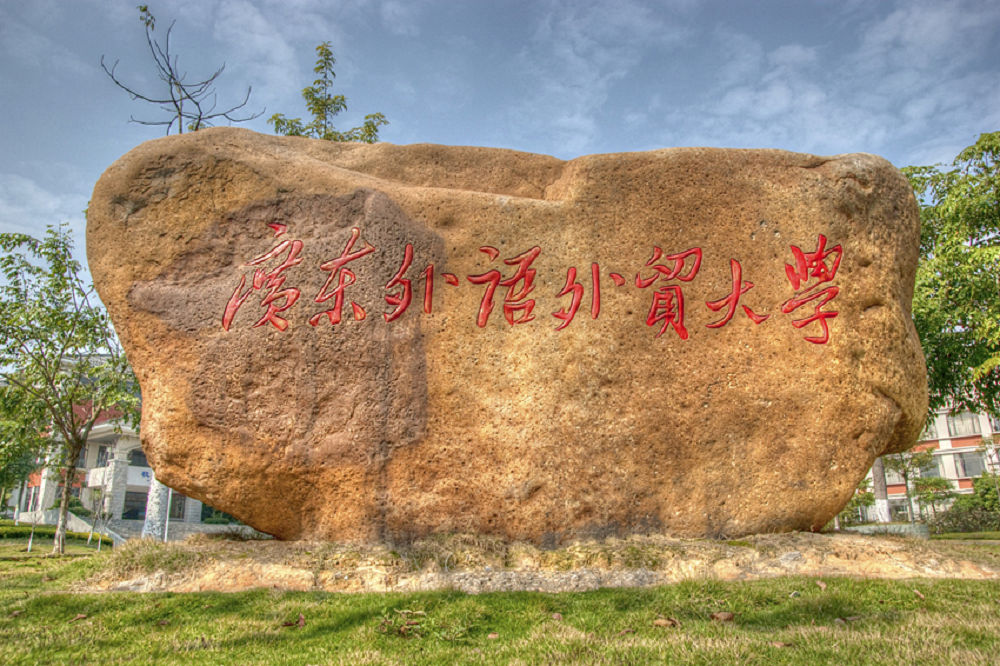 廣东外语外貿大學